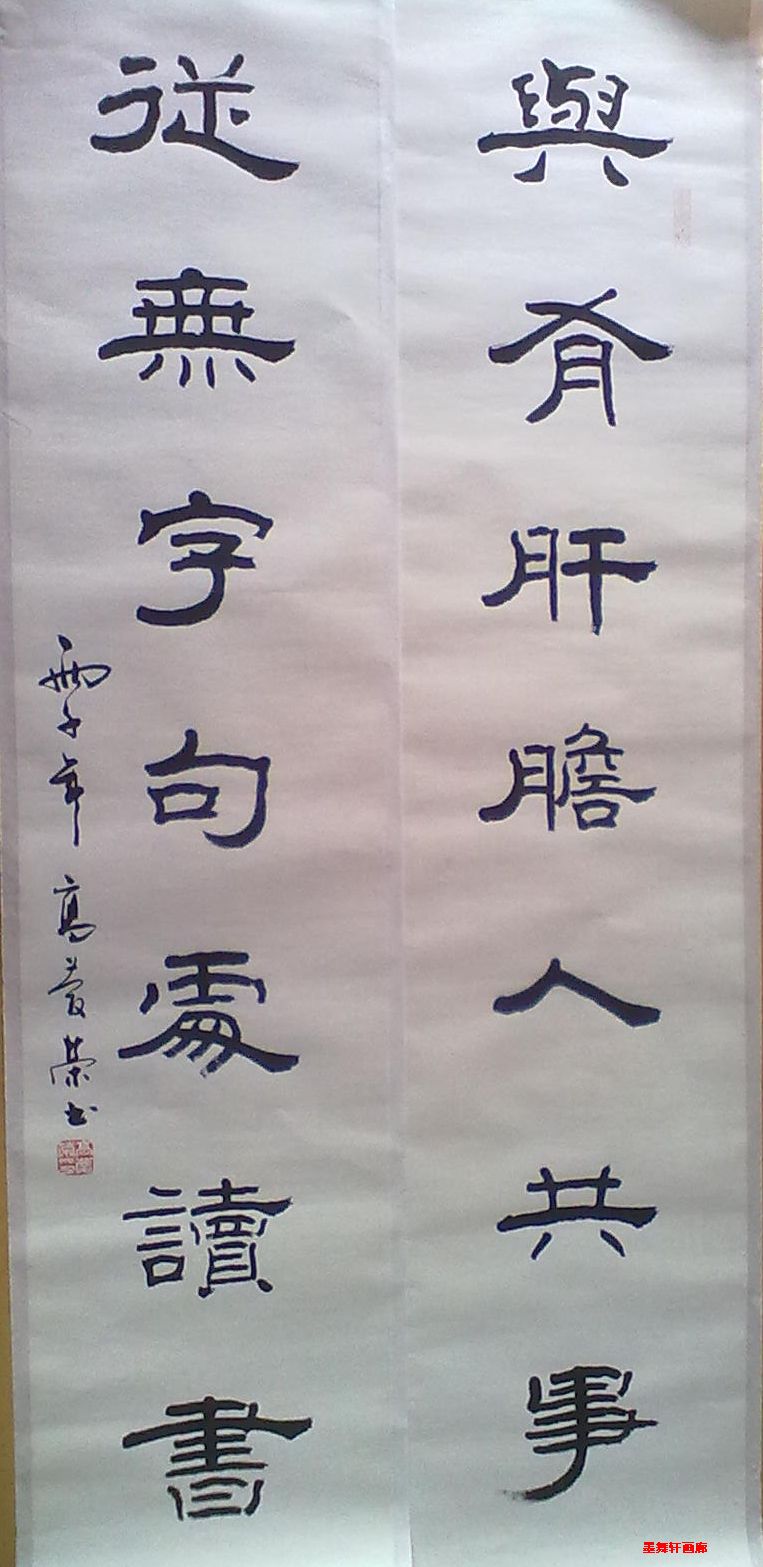 與有肝膽人共事
從無字句處讀書
丙子年 高愛榮书
墨舞轩画廊